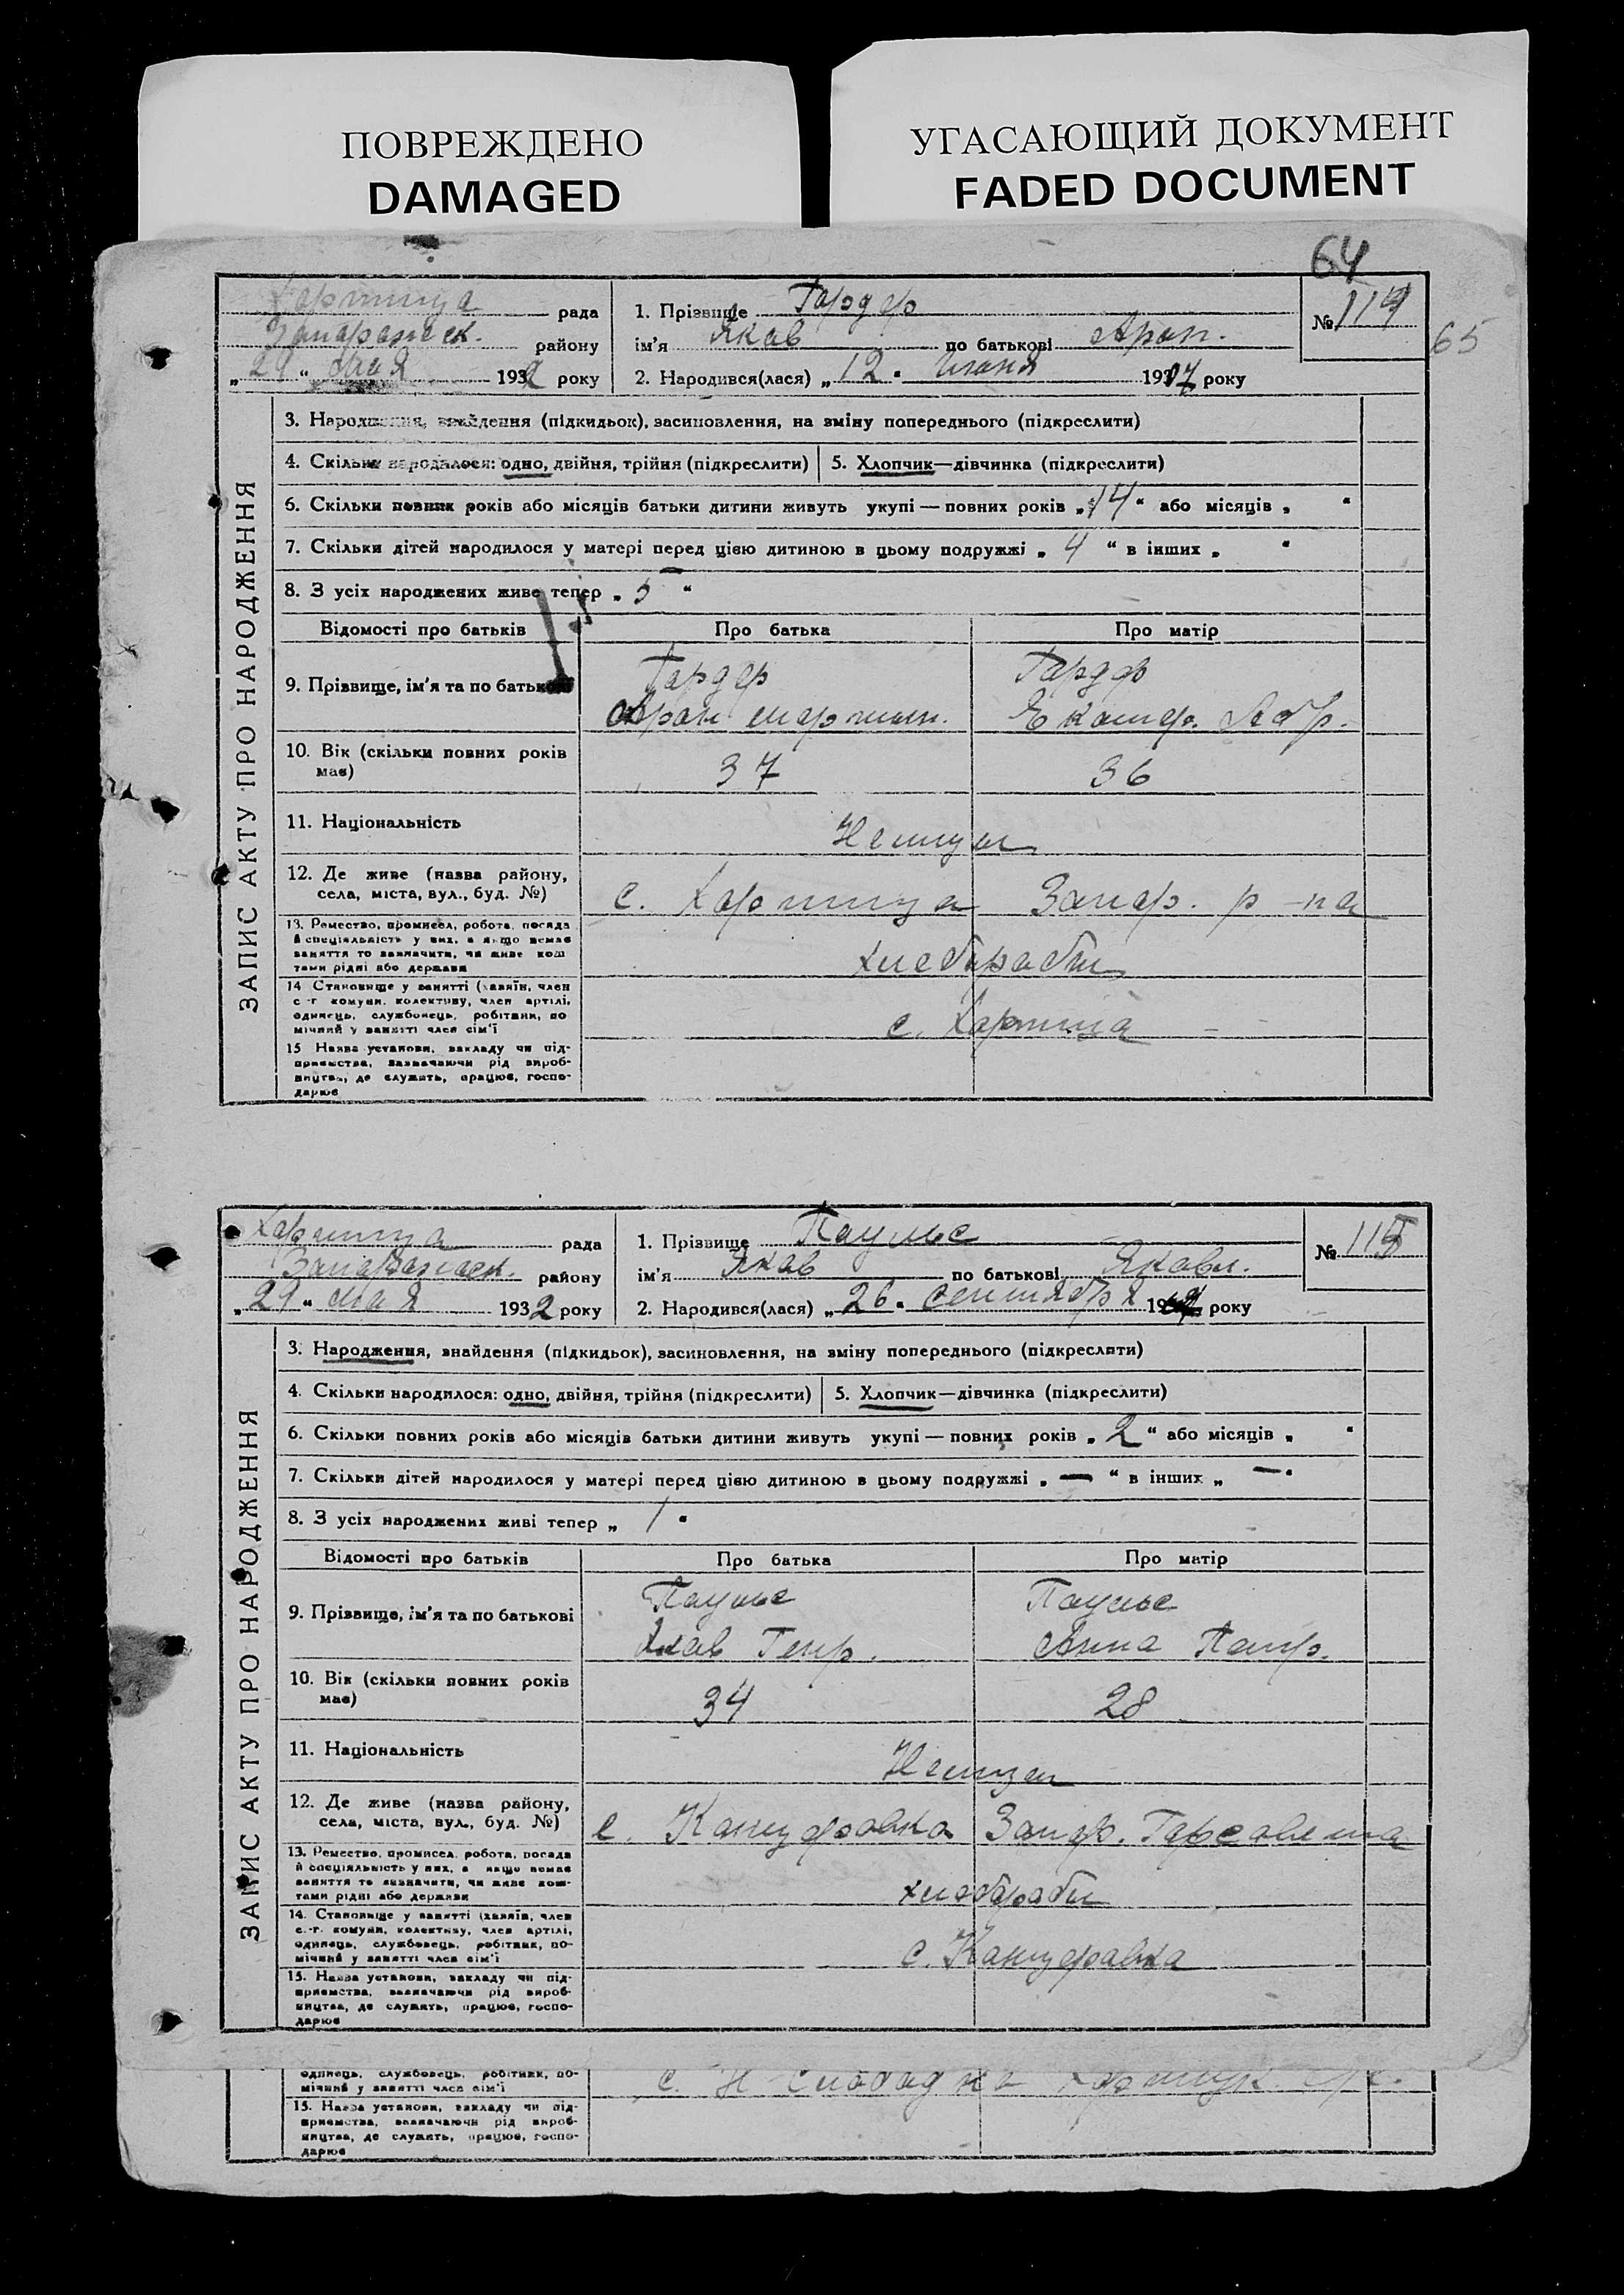 ПОВРЕЖДЕНО
DAMAGED
УГАСАЮЩИЙ ДОКУМЕНТ
FADED DOCUMENT
64
65
ЗАПИС АКТУ ПРО НАРОДЖЕННЯ
Хортица рада
Запорожск. району
„29“ мая 1932 року
1. Прізвище Гардер
ім'я Яков по батькові Арон.
2. Народився(лася) „12“ 1907 року
№ 114
3. Народження, знайдення (підкидьок), засиновлення, на зміну попереднього (підкреслити)
4. Скільки народилося: одно, двійня, трійня (підкреслити)
5. Хлопчик—дівчинка (підкреслити)
6. Скільки повних років або місяців батьки дитини живуть укупі — повних років „14“ або місяців „ “
7. Скільки дітей народилося у матері перед цією дитиною в цьому подружжі „ 4 “ в інших „ “
8. З усіх народжених живе тепер „ 5 “
Відомості про батьків Про батька Про матір
9. Прізвище, ім'я та по батькові
Гардер Гардер
Арон Мартын. Екатер. Абр.
10. Вік (скільки повних років
має)
37 36
11. Національність
Немцы
12. Де живе (назва району,
села, міста, вул., буд. №)
с. Хортица Запор. р-на
13. Ремество, промисел, робота, посада
й спеціальність у них, а якщо немає
заняття то зазначити, чи живе кош
тами рідні або держави
хлеборобы
14 Становище у занятті (хазяїн, член
с.-г. комуни, колективу, член артілі,
одинець, службовець, робітник, по
мічний у занятті член сім'ї
с. Хортица
15 Назва установи, закладу чи під-
приємства, зазначаючи рід вироб-
ництва, де служить, працює, госпо-
дарює
ЗАПИС АКТУ ПРО НАРОДЖЕННЯ
Хортица рада
Запорожск. району
„29“ мая 1932 року
1. Прізвище Паульс
ім'я Яков по батькові Яковл.
2. Народився(лася) „26“ Сентября 19 року
№ 115
3. Народження, знайдення (підкидьок), засиновлення, на зміну попереднього (підкреслити)
4. Скільки народилося: одно, двійня, трійня (підкреслити)
5. Хлопчик—дівчинка (підкреслити)
6. Скільки повних років або місяців батьки дитини живуть укупі — повних років „ 2 “ або місяців „ “
7. Скільки дітей народилося у матері перед цією дитиною в цьому подружжі „ — “ в інших „ — “
8. З усіх народжених живі тепер „ 1 “
Відомості про батьків Про батька Про матір
9. Прізвище, ім'я та по батькові
Паульс Паульс
Яков Генр. Анна Петр.
10. Вік (скільки повних років
має)
34 28
11. Національність
Немцы
12. Де живе (назва району,
села, міста, вул., буд. №)
с. Канцеровка Запор.
13. Ремество, промисел, робота, посада
й спеціальність у них, а якщо немає
заняття то зазначити, чи живе кош-
тами рідні або держави
хлеборобы
14. Становище у занятті (хазяїн, член
с.-г. комуни, колективу, член артілі,
одинець, службовець, робітник, по-
мічний у занятті член сім'ї
с. Канцеровка
15. Назва установи, закладу чи під-
приємства, зазначаючи рід вироб-
ництва, де служить, працює, госпо-
дарює
одинець, службовець, робітник, по-
мічний у занятті член сім'ї
с. Н
15. Назва установи, закладу чи під-
приємства, зазначаючи рід вироб-
ництва, де служить, працює, госпо-
дарює